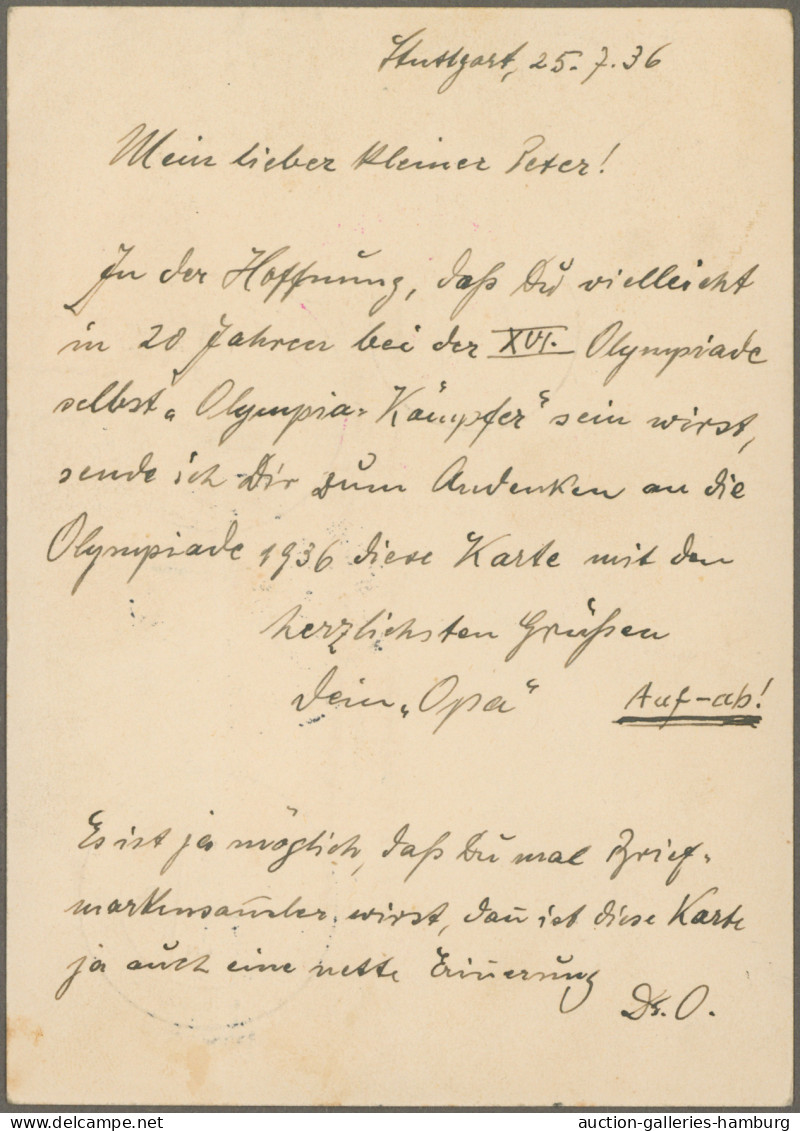 Stuttgart, 25.7.36
Mein lieber kleiner Peter!
In der Hoffnung, daß Du vielleicht
in 20 Jahren bei der XVI. Olympiade
selbst „Olympia-Kämpfer“ sein wirst,
sende ich Dir zum Andenken an die
Olympiade 1936 diese Karte mit den
herzlichsten Grüßen
Dein „Opa“ Auf-ab!
Es ist ja möglich, daß Du mal Brief-
markensam̄ler wirst, dan̄ ist diese Karte
ja auch eine nette Erin̄erung
D. O.
auction-galleries-hamburg